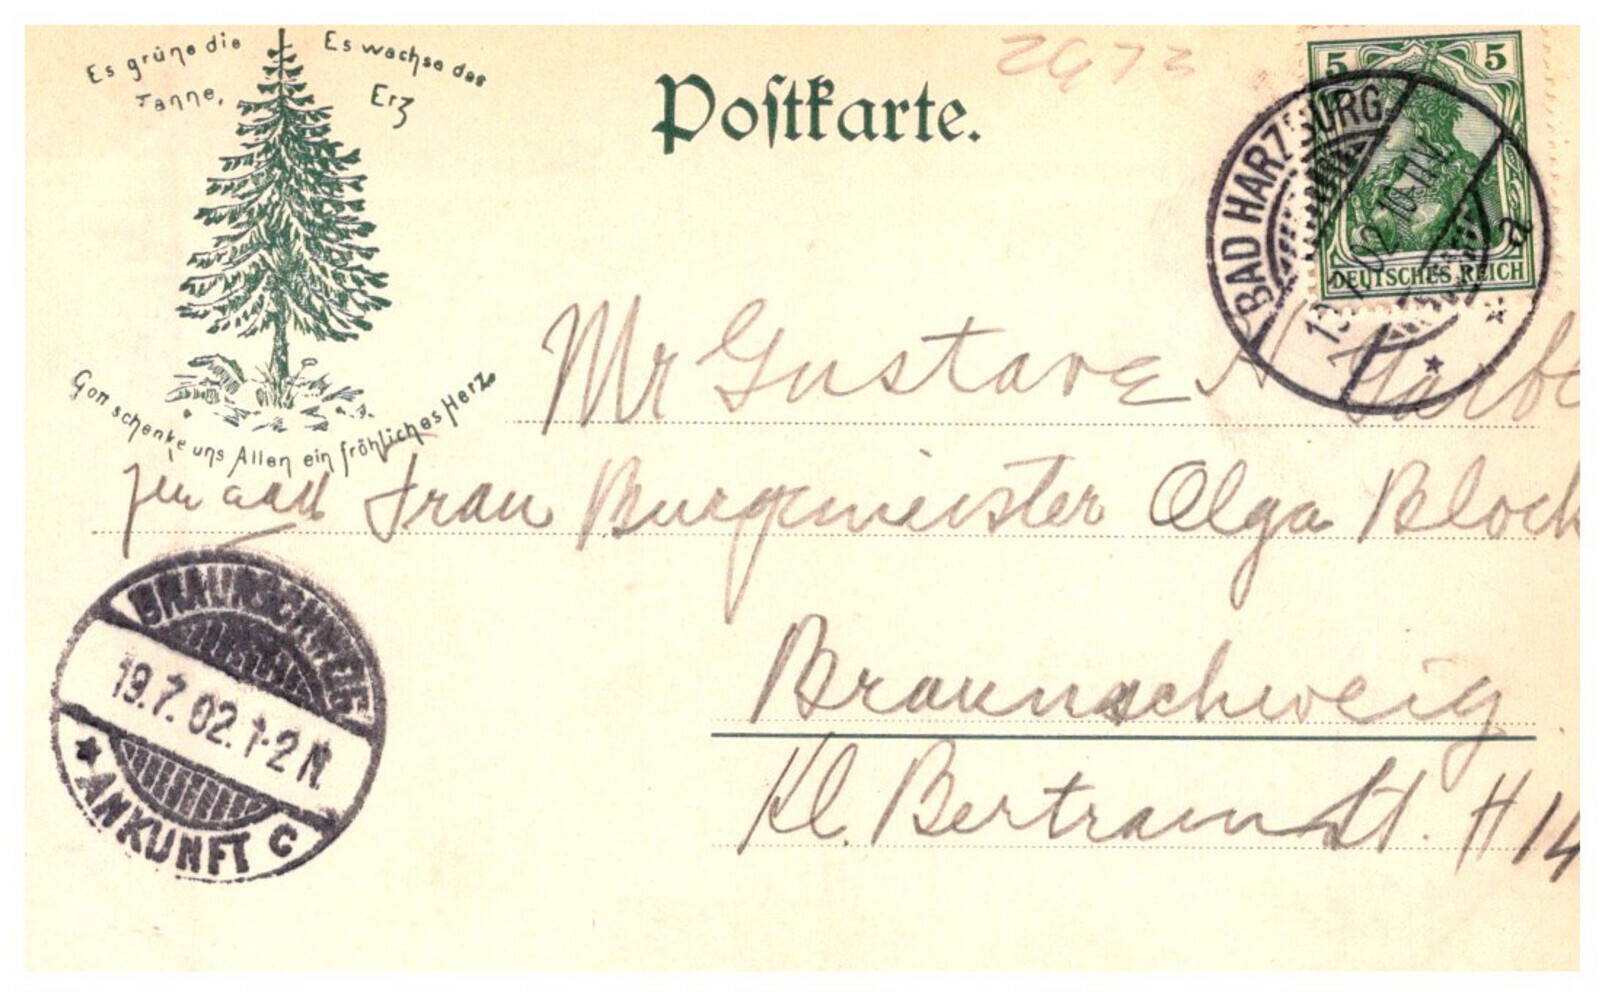 Es grüne die Tanne,
Es wachse das Erz
Gott schenke uns Allen ein fröhliches Herz.
Postkarte.
2973
5 5
DEUTSCHES REICH
BAD HARZBURG
02
a
Mr Gustave
Frau Burgemeister Olga Block
Braunschweig
Kl. Bertram St. # 14
BRAUNSCHWEIG
19.7.02. 1-2 N.
ANKUNFT c